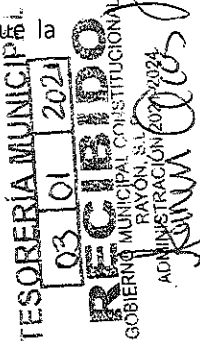 que la
TESORERÍA MUNICIPAL
03 01 202
RECIBIDO
GOBIERNO MUNICIPAL CONSTITUCIONAL
RAYON, S.L.P.
ADMINISTRACIÓN 2021-2024